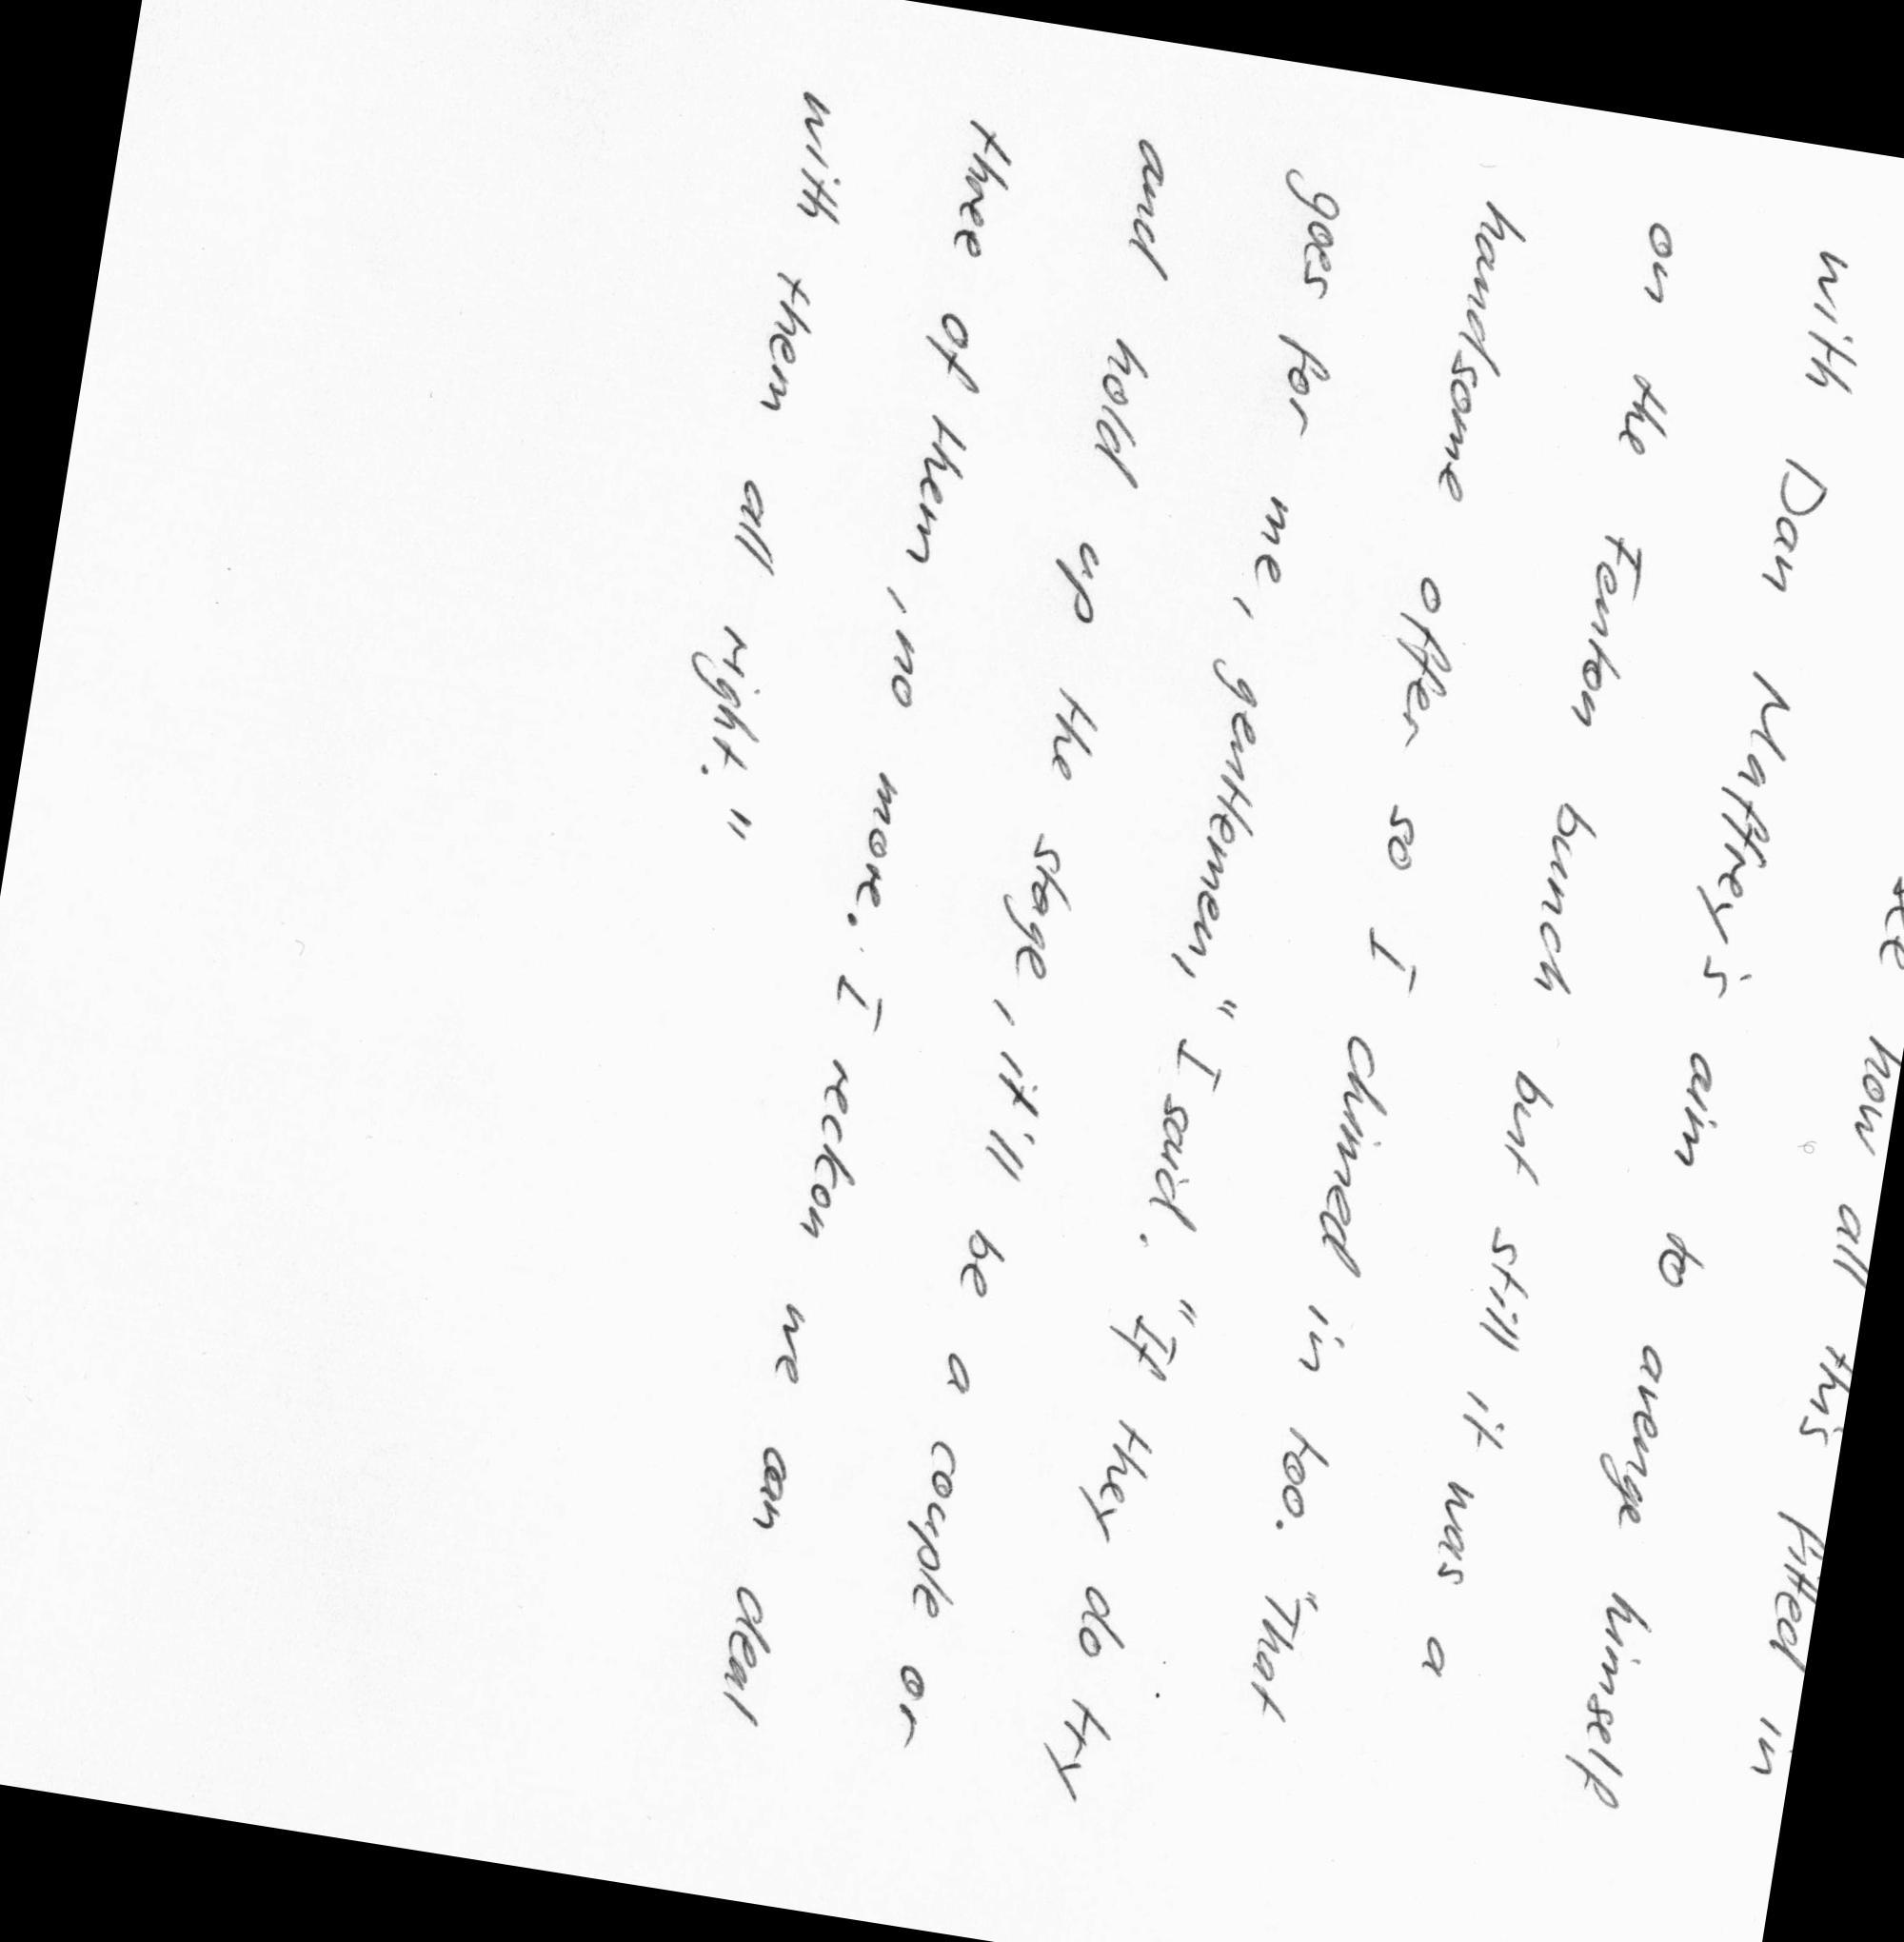 how all this fitted in
with Dan Maffrey's aim to avenge himself
on the Fenton bunch but still it was a
handsome offer so I chimed in too. "That
goes for me, gentlemen," I said. "If they do try
and hold up the stage, it'll be a couple or
three of them, no more. I reckon we can deal
with them all right."